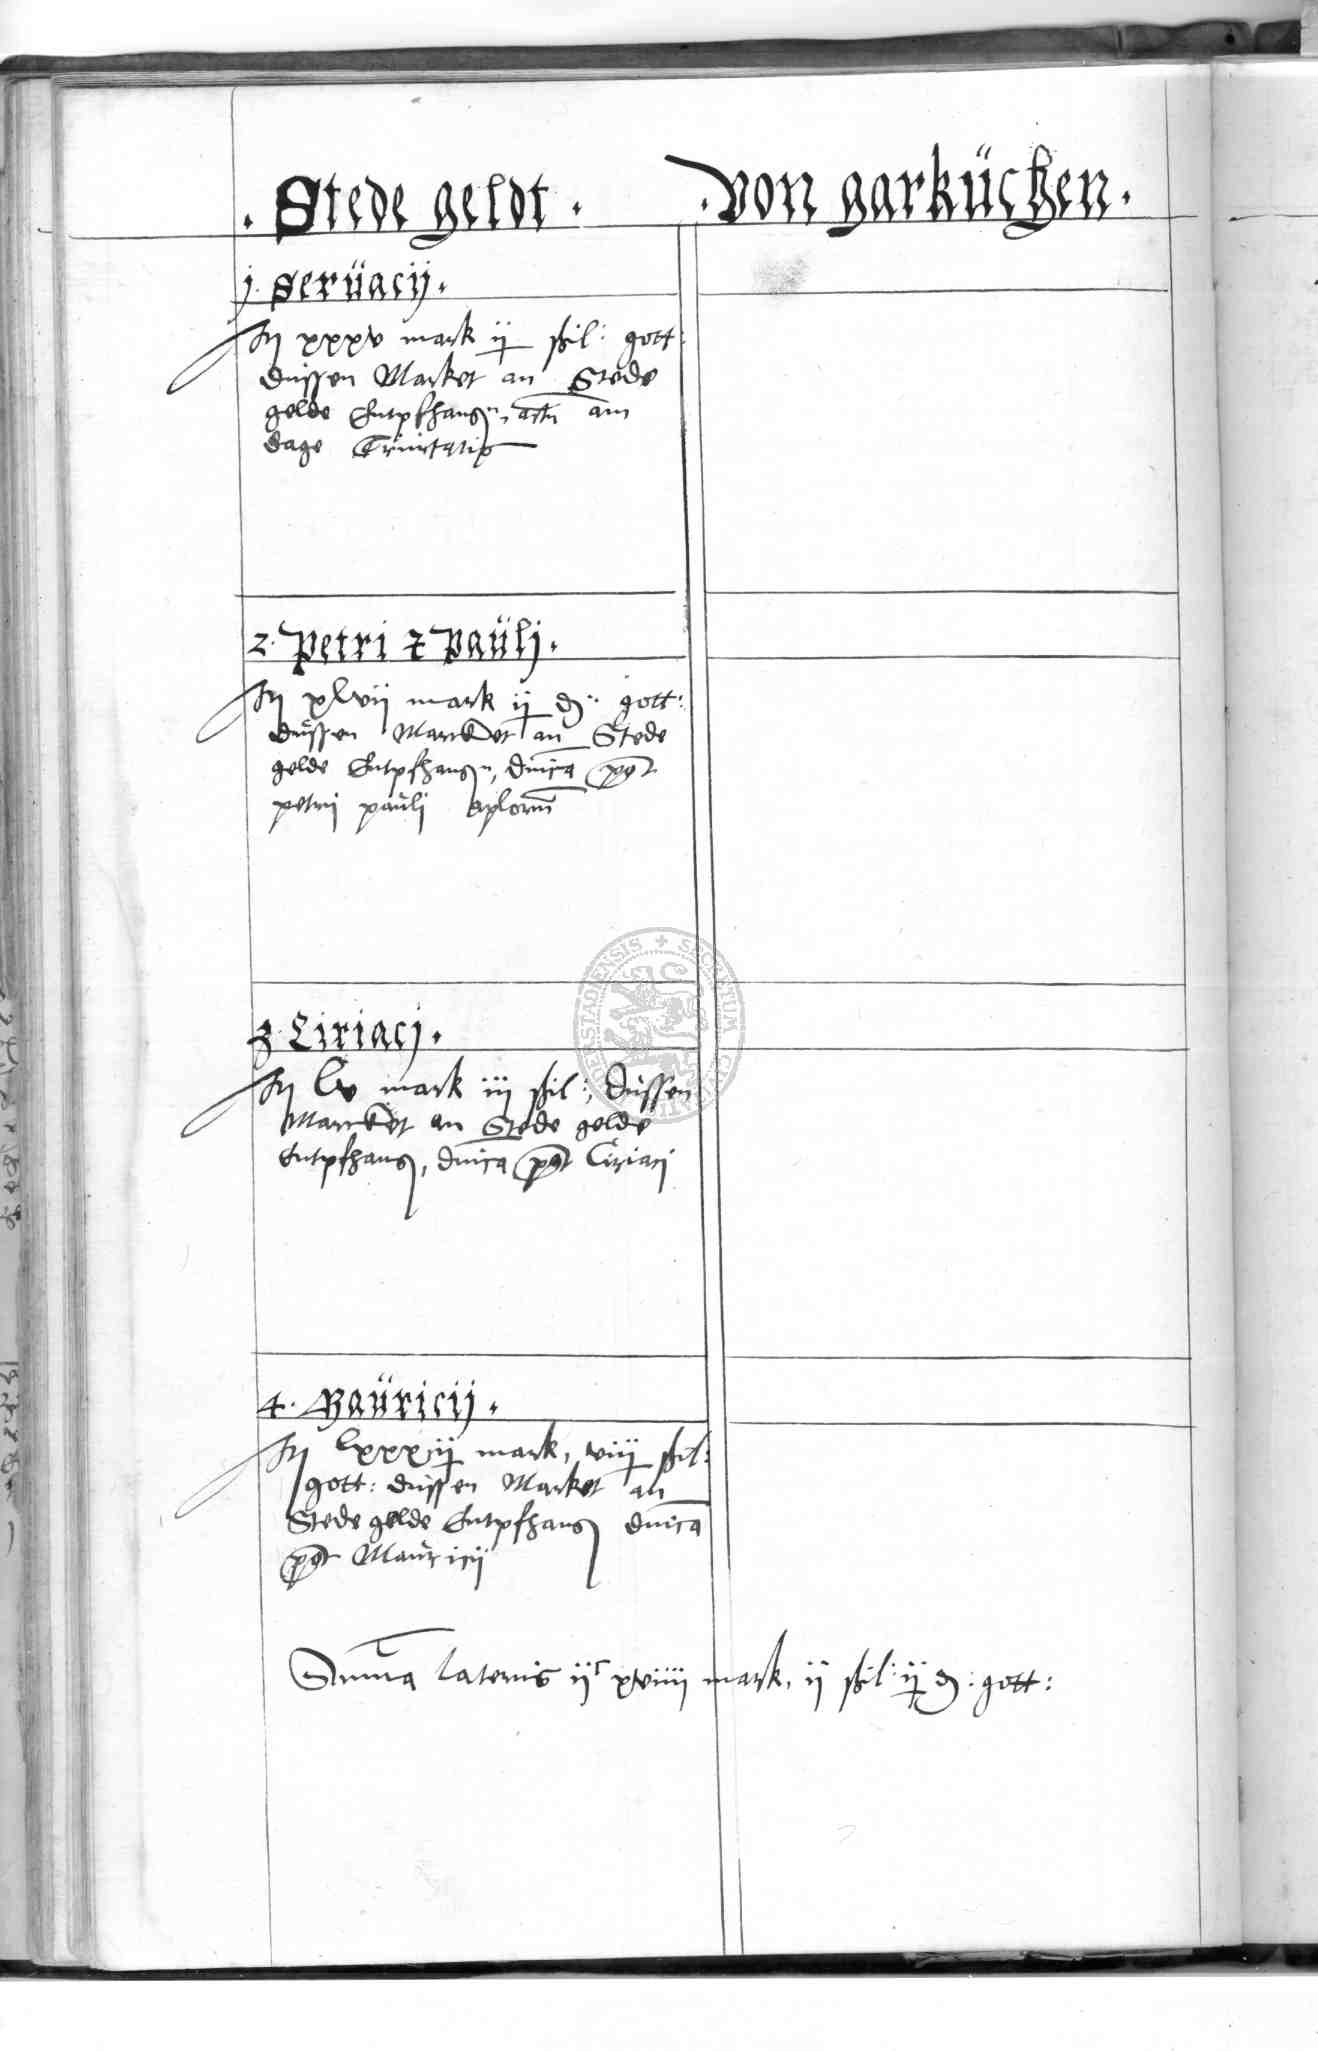 . Stede geldt . . von garküchen .
j. Serüacij .
Itz xxxv mark ij ßil: gott:
dussen Market an Stede
gelde Entpfhang, actū am
dage Trinitatis
2. Petri & Paülj .
Itz xlvij mark ij d: gott:
dussen Marcket an Stede
gelde Entpfhang, dn̄ica post
petrij paulj aplorum̄
3. Ciriacj .
Itz lv mark iij ßil:, dussen
Marcket an Stede gelde
Entpfhang, dn̄ica post Ciriacj
4. Maüricij .
Itz lxxxij mark, viij ßil:
gott: dussen Market an
Stede gelde Entpfhang dn̄ica
post Mauricij
Sum̄a lateris ijᶜ xviiij mark, ij ßil: ij d: gott:
SECRETUM